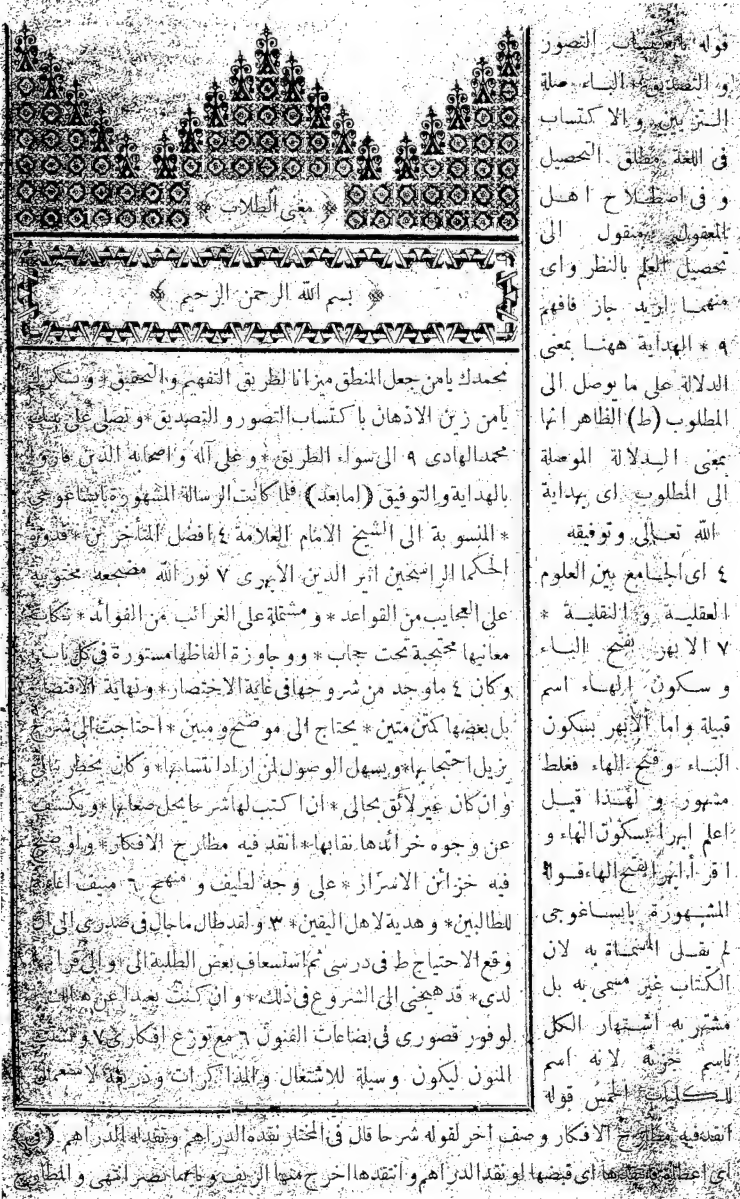 مغنى الطلاب
بسم الله الرحمن الرحيم
نحمدك يامن جعل المنطق ميزانا لطريق التفهيم والتحقيق * ونشكرك
يامن زين الاذهان باكتساب التصور و التصديق * ونصلى على
محمد الهادى ٩ الى سواء الطريق * و على آله و اصحابه الذين فازوا
بالهداية و التوفيق (امابعد) فلما كانت الرسالة المشهورة بايساغوجى
* المنسوبة الى الشيخ الامام العلامة ٤ افضل المتأخرين * قدوة
الحكما الراسخين اثير الدين الابهرى ٧ نور الله مضجعه محتوية
على العجايب من القواعد * و مشتملة على الغرائب من الفوائد * بكاب
معانيها محتجبة تحت حجاب * و وجاوزة الفاظها مستورة فى كل باب
وكان ٤ ماوجد من شروحها فى غاية الاختصار * و نهاية الاقتصا
بل بعضها كمتن متين * يحتاج الى موضح و مبين * احتاجت الى شرح
يزيل احتجابها * و يسهل الوصول لمن اراد انتسابها * وكان يخطر ببالى
وان كان غير لائق بحالى * ان اكتب لها شرحا يحل صعابها * و يكشف
عن وجوه خرائدها نقابها * انقد فيه مطارح الافكار * و اوضح
فيه خزائن الاسرار * على وجه لطيف و منهج ٦ منيف
للطالبين * و هدية لاهل اليقين * ٣ و لقد طال ماجال فى صدرى الى ان
وقع الاحتياج ط فى درسى ثم استسعاف بعض الطلبة الى
لدى * قد هيجنى الى الشروع فى ذلك * و ان كنت بعيدا عن هنالك
لوفور قصورى فى بضاعات الفنون ٦ مع توزع افكارى ٧
المنون ليكون وسيلة للاشتغال و المذاكرات و ذريعة لاستعمال
قوله باكتساب التصور
و التصديق الباء صلة
التزيين و الاكتساب
فى اللغة مطلق التحصيل
و فى اصطلاح اهل
المعقول منقول الى
تحصيل العلم بالنظر و اى
منهما اريد جاز فافهم
٩ * الهداية ههنا بمعنى
الدلالة على ما يوصل الى
المطلوب (ط) الظاهر انها
بمعنى الدلالة الموصلة
الى المطلوب اى بهداية
الله تعالى و توفيقه
٤ اى الجامع بين العلوم
العقلية و النقلية *
٧ الابهر بفتح الباء
و سكون الهاء اسم
قبيلة و اما الابهر بسكون
الباء و فتح الهاء فغلط
مشهور و لهذا قيل
اعلم ابهرا بسكون الهاء و
اقرأ ابهرا بفتح الهاء قوله
المشهورة بايساغوجى
لم يقل المسماة به لان
الكتاب غير مسمى به بل
مشتهر به اشتهار الكل
باسم جزئه لانه اسم
للكليات الخمس قوله
انقد فيه مطارح الافكار وصف اخر لقوله شرحا قال فى المختار نقده الدراهم و نقد له الدراهم (فى)
اى اعطاه فانتقدها اى قبضها و نقد الدراهم و انتقدها اخرج منها الزيف و بابهما نصر انتهى و المطارح